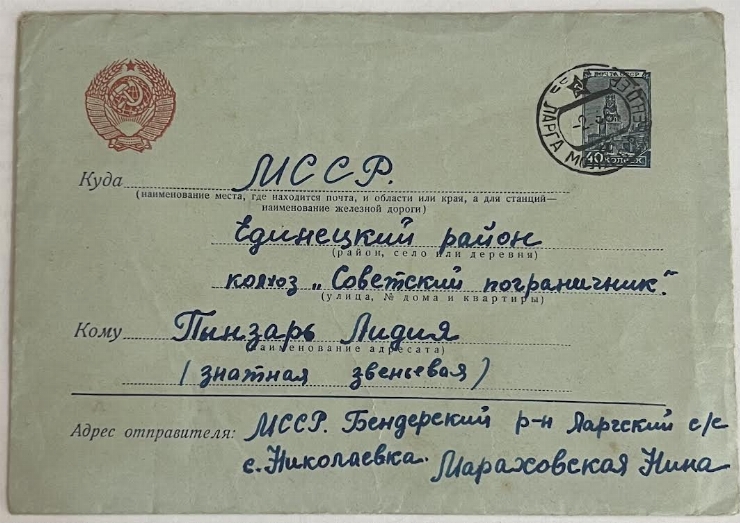 ПОЧТА СССР
ЛАРГА
40 КОПЕЕК
Куда МССР.
(наименование места, где находится почта, и области или края, а для станций—
наименование железной дороги)
Единецкий район
(район, село или деревня)
колхоз „Советский пограничник".
(улица, № дома и квартиры)
Кому Пынзарь Лидия
(наименование адресата)
(знатная звеньевая)
Адрес отправителя: МССР. Бендерский р-н Ларгский с/с
с. Николаевка. Мараховская Нина